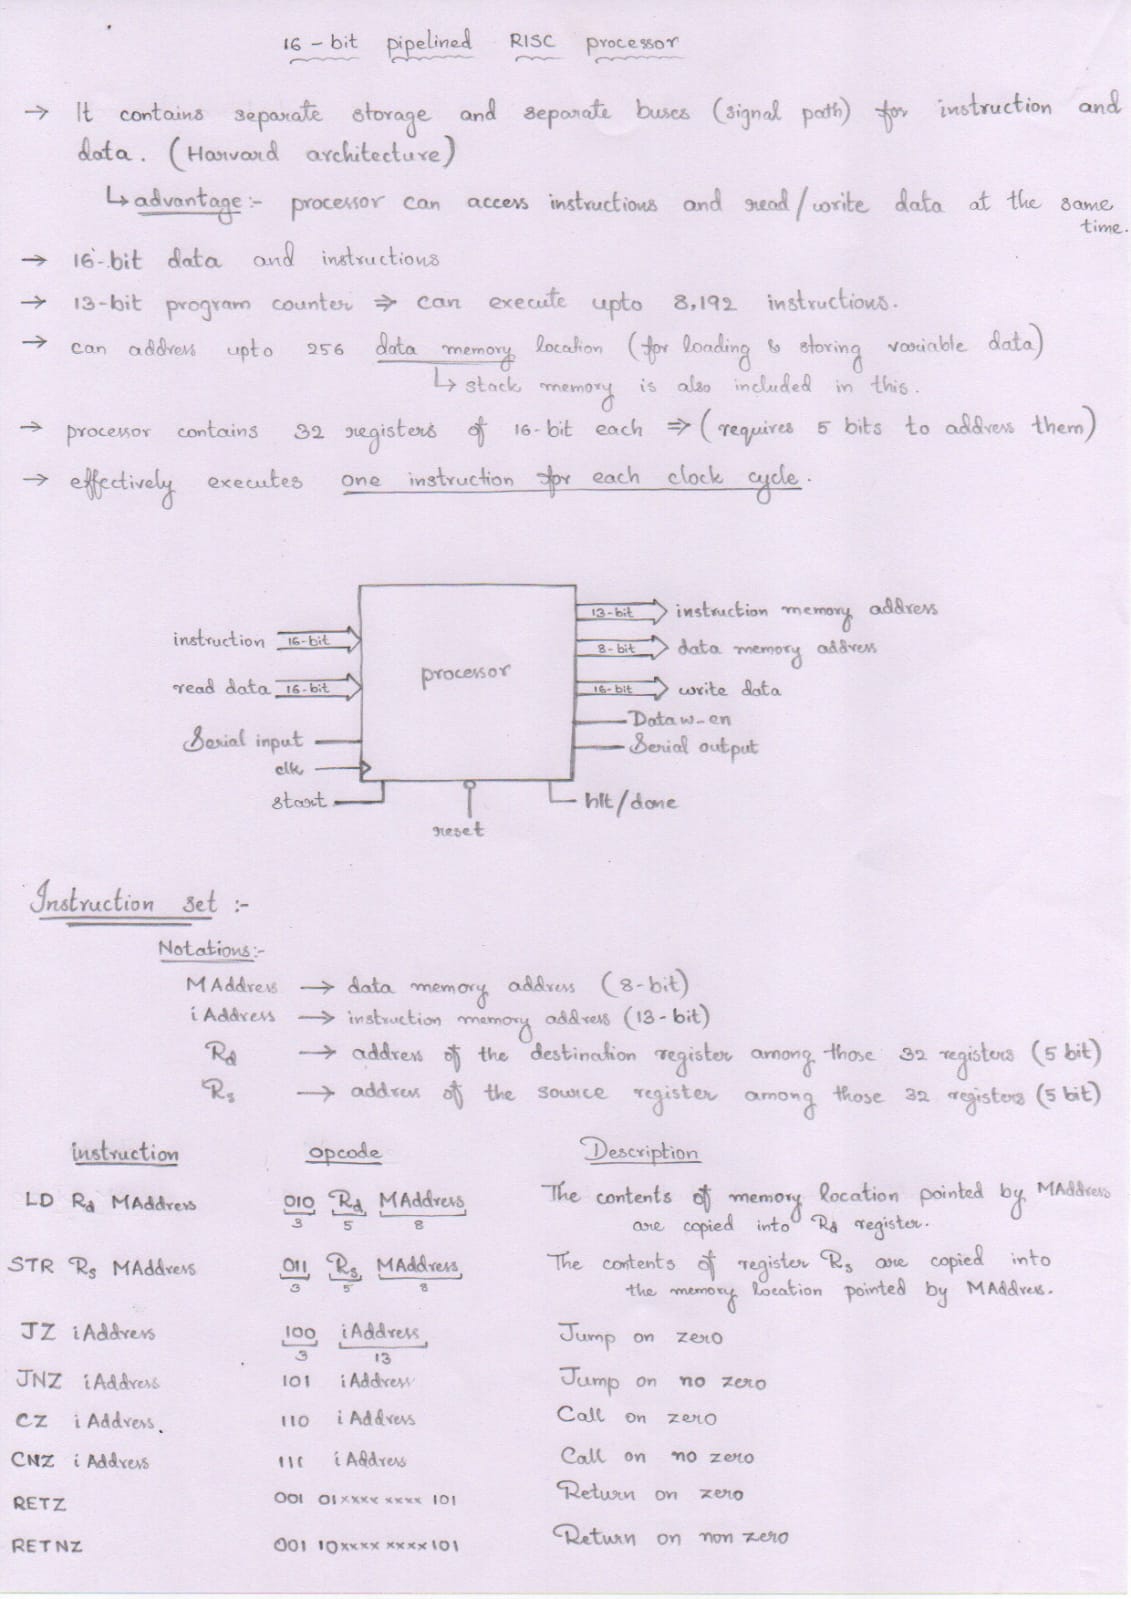 16-bit pipelined RISC processor
→ It contains separate storage and separate buses (signal path) for instruction and
data. (Harvard architecture)
↳ advantage:- processor can access instructions and read/write data at the same
time.
→ 16-bit data and instructions
→ 13-bit program counter ⇒ can execute upto 8,192 instructions.
→ can address upto 256 data memory location (for loading & storing variable data)
↳ stack memory is also included in this.
→ processor contains 32 registers of 16-bit each ⇒ (requires 5 bits to address them)
→ effectively executes one instruction for each clock cycle.
13-bit instruction memory address
instruction 16-bit
8-bit data memory address
processor
read data 16-bit
16-bit write data
Data w-en
Serial input
Serial output
clk
start
hlt/done
reset
Instruction set :-
Notations:-
MAddress → data memory address (8-bit)
iAddress → instruction memory address (13-bit)
Rd → address of the destination register among those 32 registers (5 bit)
Rs → address of the source register among those 32 registers (5 bit)
instruction opcode Description
LD Rd MAddress 010 Rd MAddress The contents of memory location pointed by MAddress
3 5 8 are copied into Rd register.
STR Rs MAddress 011 Rs MAddress The contents of register Rs are copied into
3 5 8 the memory location pointed by MAddress.
JZ iAddress 100 iAddress Jump on zero
3 13
JNZ iAddress 101 iAddress Jump on no zero
CZ iAddress. 110 iAddress Call on zero
CNZ iAddress 111 iAddress Call on no zero
RETZ 001 01xxxx xxxx 101 Return on zero
RETNZ 001 10xxxx xxxx 101 Return on non zero